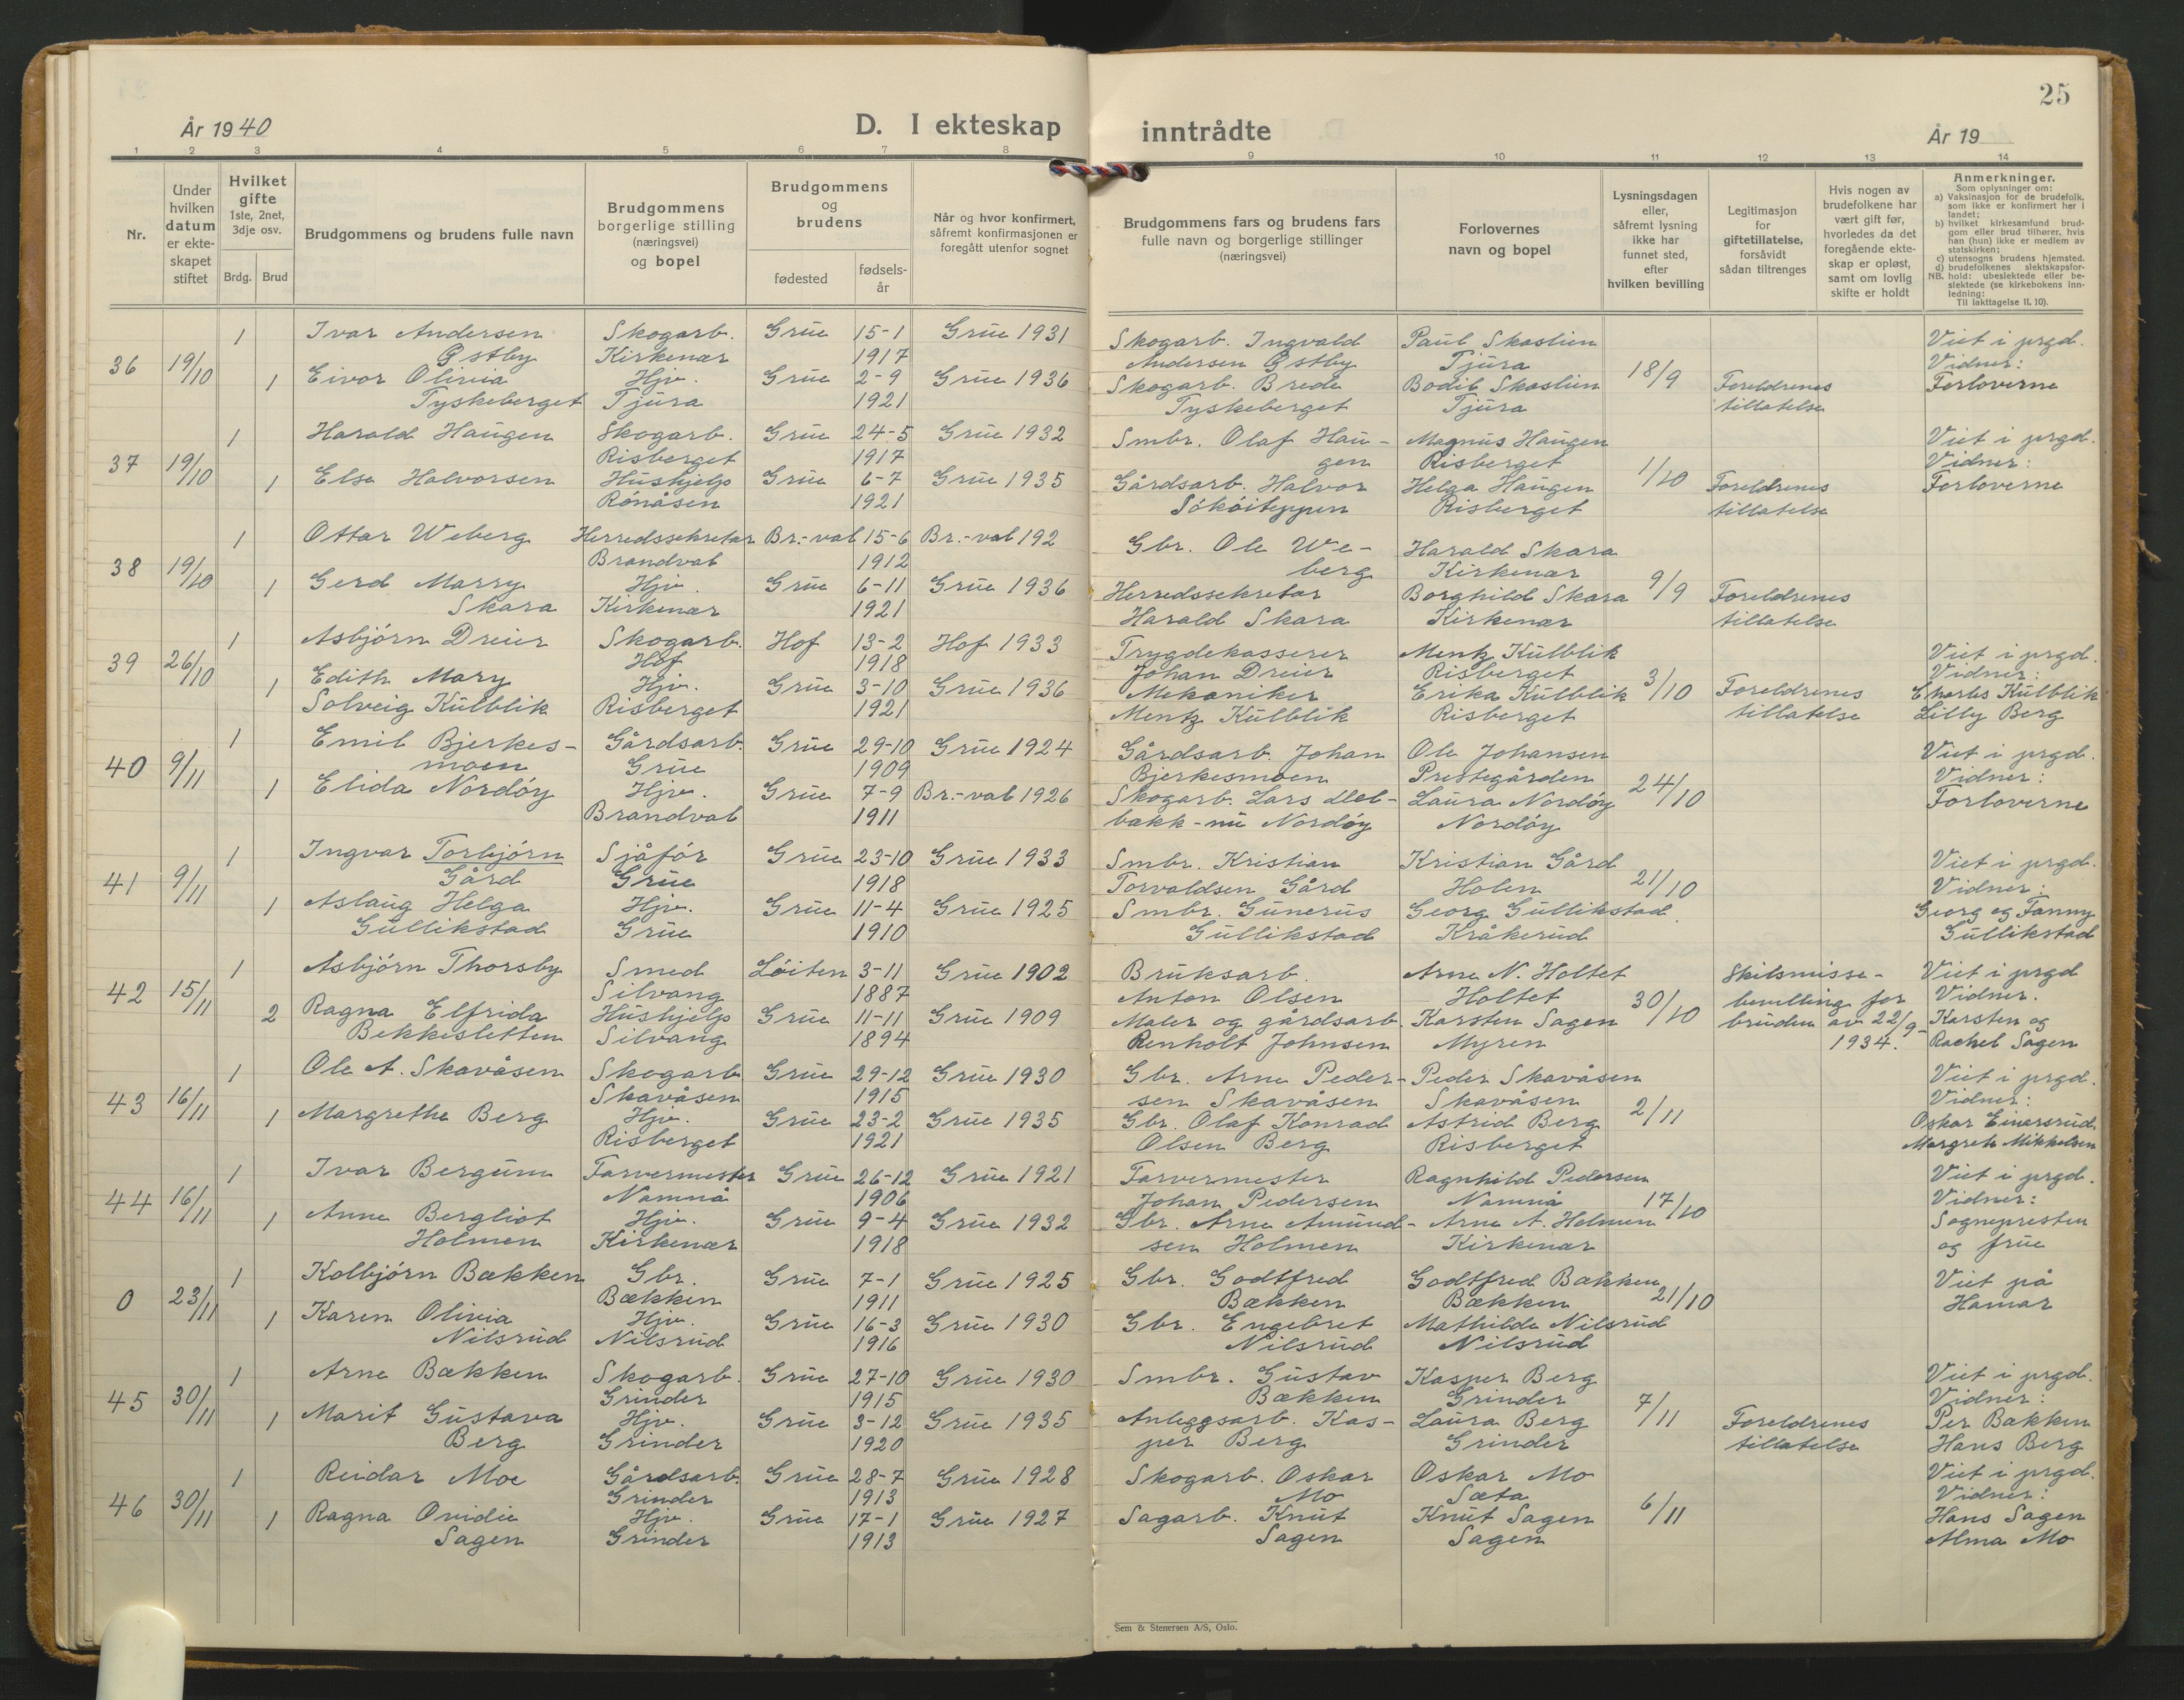 25
År 1940
D. I ekteskap inntrådte
År 19
1 2 3 4 5 6 7 8 9 10 11 12 13 14
Nr.
Under hvilken datum er ekte-skapet stiftet
Hvilket gifte 1ste, 2net, 3dje osv.
Brdg. Brud
Brudgommens og brudens fulle navn
Brudgommens borgerlige stilling (næringsvei) og bopel
Brudgommens og brudens
fødested
fødsels-år
Når og hvor konfirmert, såfremt konfirmasjonen er foregått utenfor sognet
Brudgommens fars og brudens fars fulle navn og borgerlige stillinger (næringsvei)
Forlovernes navn og bopel
Lysningsdagen eller, såfremt lysning ikke har funnet sted, efter hvilken bevilling
Legitimasjon for giftetillatelse, forsåvidt sådan tiltrenges
Hvis nogen av brudefolkene har vært gift før, hvorledes da det foregående ekte-skap er opløst, samt om lovlig skifte er holdt
Anmerkninger.
Som oplysninger om:
a) Vaksinasjon for de brudefolk, som ikke er konfirmert her i landet;
b) hvilket kirkesamfund brud-gom eller brud tilhører, hvis han (hun) ikke er medlem av statskirken;
c) utensogns brudens hjemsted.
d) brudefolkenes slektskapsfor-
NB. hold: ubeslektede eller be-slektede (se kirkebokens inn-ledning:
Til iakttagelse II, 10).
1 Ivar Andersen Skogarb. Grue 15-1 Grue 1931 Skogarb. Ingvald Paul Skaslien Viet i prgd.
36 19/10 Østby Kirkenær 1917 Andersen Østby Tjura 18/9 Vidner:
1 Eivor Olivia Hjv. Grue 2-9 Grue 1936 Skogarb. Brede Bodil Skaslien Foreldrenes Forloverne
Tyskeberget Tjura 1921 Tyskeberget Tjura tillatelse
1 Harald Haugen Skogarb. Grue 24-5 Grue 1932 Smbr. Olaf Hau- Magnus Haugen Viet i prgd.
37 19/10 Risberget 1917 gen Risberget 1/10 Vidner:
1 Else Halvorsen Hushjelp Grue 6-7 Grue 1935 Gårdsarb. Halvor Helga Haugen Foreldrenes Forloverne
Rønåsen 1921 Risberget tillatelse
1 Ottar Weberg Herredssekretær Br.-val 15-6 Br.-val 192 Gbr. Ole We- Harald Skara
38 19/10 Brandval 1912 berg Kirkenær 9/9
1 Gerd Marry Hjv. Grue 6-11 Grue 1936 Herredssekretær Borghild Skara Foreldrenes
Skara Kirkenær 1921 Harald Skara Kirkenær tillatelse
1 Asbjørn Dreier Skogarb. Hof 13-2 Hof 1933 Trygdekasserer Mentz Kulblik Viet i prgd.
39 26/10 Hof 1918 Johan Dreier Risberget 3/10 Vidner:
1 Edith Mary Hjv. Grue 3-10 Grue 1936 Mekaniker Erika Kulblik Foreldrenes Charles Kulblik
Solveig Kulblik Risberget 1921 Mentz Kulblik Risberget tillatelse Lilly Berg
1 Emil Bjerkes- Gårdsarb. Grue 29-10 Grue 1924 Gårdsarb. Johan Ole Johansen Viet i prgd.
40 9/11 moen Grue 1909 Bjerkesmoen Prestegården 24/10 Vidner:
1 Elida Nordøy Hjv. Grue 7-9 Br.-val 1926 Skogarb. Lars Laura Nordøy Forloverne
Brandval 1911 bakk-nu Nordøy Nordøy
1 Ingvar Torbjørn Sjåfør Grue 23-10 Grue 1933 Smbr. Kristian Kristian Gård Viet i prgd.
41 9/11 Gård Grue 1918 Torvaldsen Gård Holen 21/10 Vidner:
1 Aslaug Helga Hjv. Grue 11-4 Grue 1925 Smbr. Gunerus Georg Gullikstad Georg og Fanny
Gullikstad Grue 1910 Gullikstad Kråkerud Gullikstad
1 Asbjørn Thorsby Smed Løiten 3-11 Grue 1902 Bruksarb. Arne N. Holtet Skilsmisse- Viet i prgd
42 15/11 Silvang 1887 Anton Olsen Holtet 30/10 bevilling for Vidner.
2 Ragna Elfrida Hushjelp Grue 11-11 Grue 1909 Maler og gårdsarb. Karsten Sagen bruden av 22/9- Karsten og
Bekkesletten Silvang 1894 Renholt Johnsen Myren 1934. Rachel Sagen
1 Ole A. Skavåsen Skogarb. Grue 29-12 Grue 1930 Gbr. Arne Peder- Peder Skavåsen Viet i prgd.
43 16/11 Skavåsen 1915 sen Skavåsen Skavåsen 2/11 Vidner:
1 Margrethe Berg Hjv. Grue 23-2 Grue 1935 Gbr. Olaf Konrad Astrid Berg Oskar Einarsrud
Risberget 1921 Olsen Berg Risberget Margrete Mikkelsen
1 Ivar Bergum Farvermester Grue 26-12 Grue 1921 Farvermester Ragnhild Pedersen Viet i prgd.
44 16/11 Namnå 1906 Johan Pedersen Namnå 17/10 Vidner:
1 Anne Bergliot Hjv. Grue 9-4 Grue 1932 Gbr. Arne Amund- Arne A. Holmen Sognepresten
Holmen Kirkenær 1918 sen Holmen Kirkenær og frue
1 Kolbjørn Bækken Gbr. Grue 7-1 Grue 1925 Gbr. Godtfred Godtfred Bækken Viet på
0 23/11 Bækken 1911 Bækken Bækken 21/10 Hamar
1 Karen Olivia Hjv. Grue 16-3 Grue 1930 Gbr. Engebret Mathilde Nilsrud
Nilsrud Nilsrud 1916 Nilsrud Nilsrud
1 Arne Bækken Skogarb. Grue 27-10 Grue 1930 Smbr. Gustav Kasper Berg Viet i prgd.
45 30/11 Grinder 1915 Bækken Grinder 7/11 Vidner:
1 Marit Gustava Hjv. Grue 3-12 Grue 1935 Anleggsarb. Kas- Laura Berg Foreldrenes Per Bækken
Berg Grinder 1920 per Berg Grinder tillatelse Hans Berg
1 Reidar Moe Gårdsarb. Grue 28-7 Grue 1928 Skogarb. Oskar Oskar Mo Viet i prgd.
46 30/11 Grinder 1913 Mo Sæta 6/11 Vidner:
1 Ragna Ovidie Hjv. Grue 17-1 Grue 1927 Sagarb. Knut Knut Sagen Hans Sagen
Sagen Grinder 1913 Sagen Sagen Alma Mo
Sem & Stenersen A/S, Oslo.